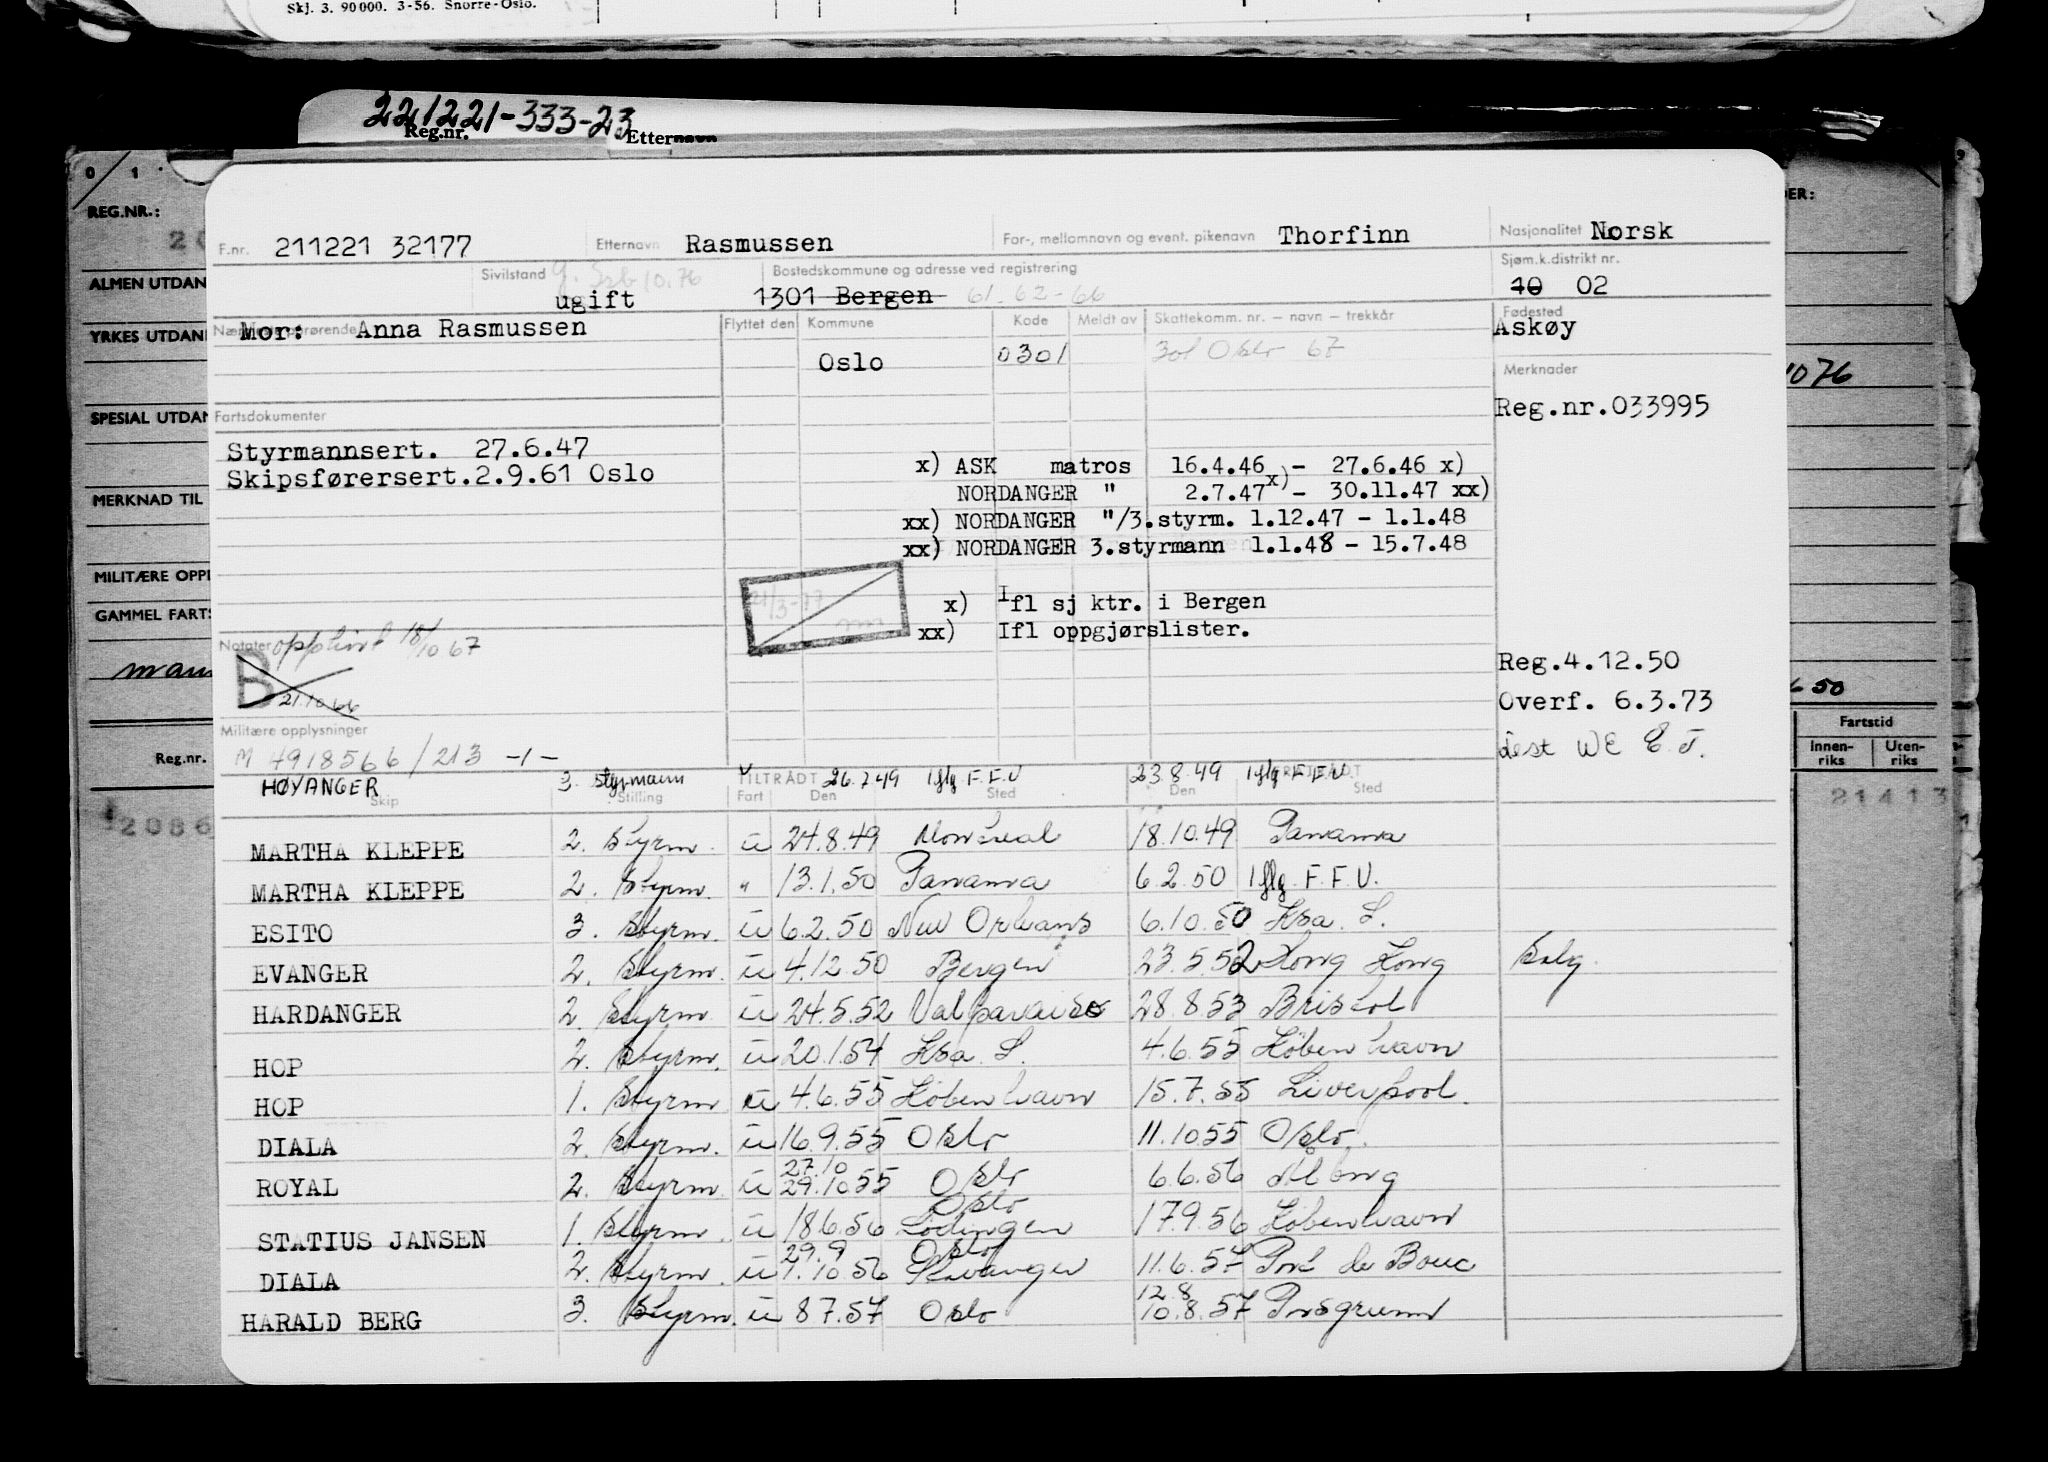 Skj. 3. 90000. 3-56. Snorre-Oslo.
221221-333-23
Reg.nr. Etternavn
0 1
REG.NR.:
ALMEN UTDAN
YRKES UTDAN
SPESIAL UTDAN
MERKNAD TIL
MILITÆRE OPPL
GAMMEL FARTS
Reg.nr.
1076
50
Fartstid
Innen-riks Uten-riks
21413
F.nr. 211221 32177 Etternavn Rasmussen For-, mellomnavn og event. pikenavn Thorfinn Nasjonalitet Norsk
Sivilstand ugift g. 10.76 Bostedskommune og adresse ved registrering 1301 Bergen 61-62-66 Sjøm.k.distrikt nr. 10 02
Nærmeste pårørende Mor: Anna Rasmussen Flyttet den Kommune Kode Meldt av Skattekomm. nr. – navn – trekkår Fødested Askøy
Oslo 0301 301 Oslo 67
Merknader
Reg.nr.033995
Fartsdokumenter
Styrmannsert. 27.6.47
Skipsførersert.2.9.61 Oslo
x) ASK matros 16.4.46 – 27.6.46 x)
NORDANGER " 2.7.47 x) – 30.11.47 xx)
xx) NORDANGER "/3.styrm. 1.12.47 – 1.1.48
xx) NORDANGER 3.styrmann 1.1.48 – 15.7.48
21/3-77
x) Ifl sj ktr. i Bergen
xx) Ifl oppgjørslister.
Notater 18/10 67
B
21.10 66
Reg.4.12.50
Overf. 6.3.73
Militære opplysninger
M 4918566/213 -1-
Skip Stilling Fart TILTRÅDT Den Sted FRATRÅDT Den Sted
HØYANGER 3. Styrmann 26.7.49 Iflg F.F.U 23.8.49 Iflg F.F.U.
MARTHA KLEPPE 2. Styrm. u 24.8.49 Montreal 18.10.49 Panama
MARTHA KLEPPE 2. Styrm. " 13.1.50 Panama 6.2.50 Iflg. F.F.U.
ESITO 3. Styrm. u 6.2.50 New Orleans 6.10.50 Kra. S.
EVANGER 2. Styrm. u 4.12.50 Bergen 23.5.52 Hong Kong Salg.
HARDANGER 2. Styrm. u 24.5.52 Valparaiso 28.8.53 Bristol
HOP 2. Styrm. u 20.1.54 Kra. S. 4.6.55 København
HOP 1. Styrm u 4.6.55 København 15.7.55 Liverpool.
DIALA 2. Styrm. u 16.9.55 Oslo 11.10.55 Oslo.
ROYAL 2. Styrm. u 27.10 29.10.55 Oslo 6.6.56 Ålborg
STATIUS JANSEN 1. Styrm. u 18.6.56 Oslo Lødingen 17.9.56 København
DIALA 2. Styrm. u 29.9 1.10.56 Oslo Stavanger 11.6.57 Port de Bouc
HARALD BERG 3. Styrm. u 8.7.57 Oslo 12.8 10.8.57 Porsgrunn